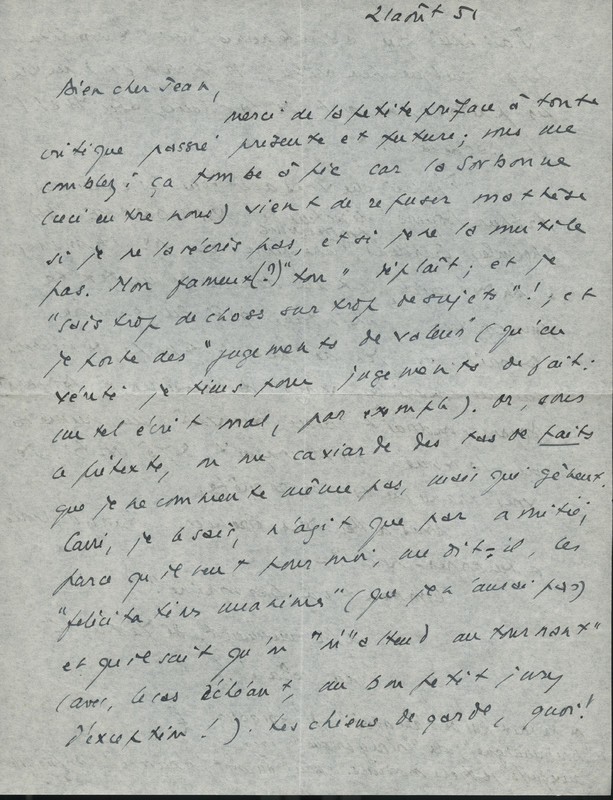 21 août 51
Bien cher Jean,
merci de la petite préface à toute
critique passée présente et future ; vous me
comblez : ça tombe à pic car la Sorbonne
(ceci entre nous) vient de refuser ma thèse
si je ne la récris pas, et si je ne la mutile
pas. Mon fameux(?) "ton" déplaît ; et je
"sais trop de choses sur trop de sujets" ! ; et
je porte des "jugements de valeur" (qu'en
vérité je tiens pour jugements de fait :
un tel écrit mal, par exemple). Or, sous
ce prétexte, on me caviarde des tas de faits
que je ne commente même pas, mais qui gênent.
Carré, je le sais, n'agit que par amitié,
parce qu'il veut pour moi, me dit-il, les
"félicitations unanimes" (que je n'aurai pas)
et qu'il sait qu'on "m'attend au tournant"
(avec, le cas échéant, un bon petit jury
d'exception !). Les chiens de garde, quoi !